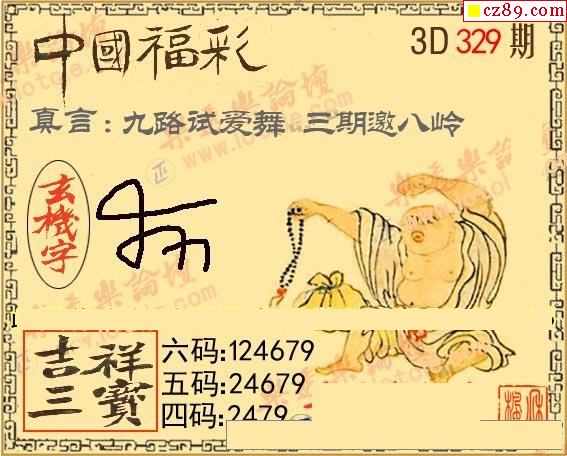 cz89.com
中國福彩
3D 329 期
真言：九路试爱舞 三期邀八岭
玄機字
吉祥三寶
六码:124679
五码:24679
四码:2479